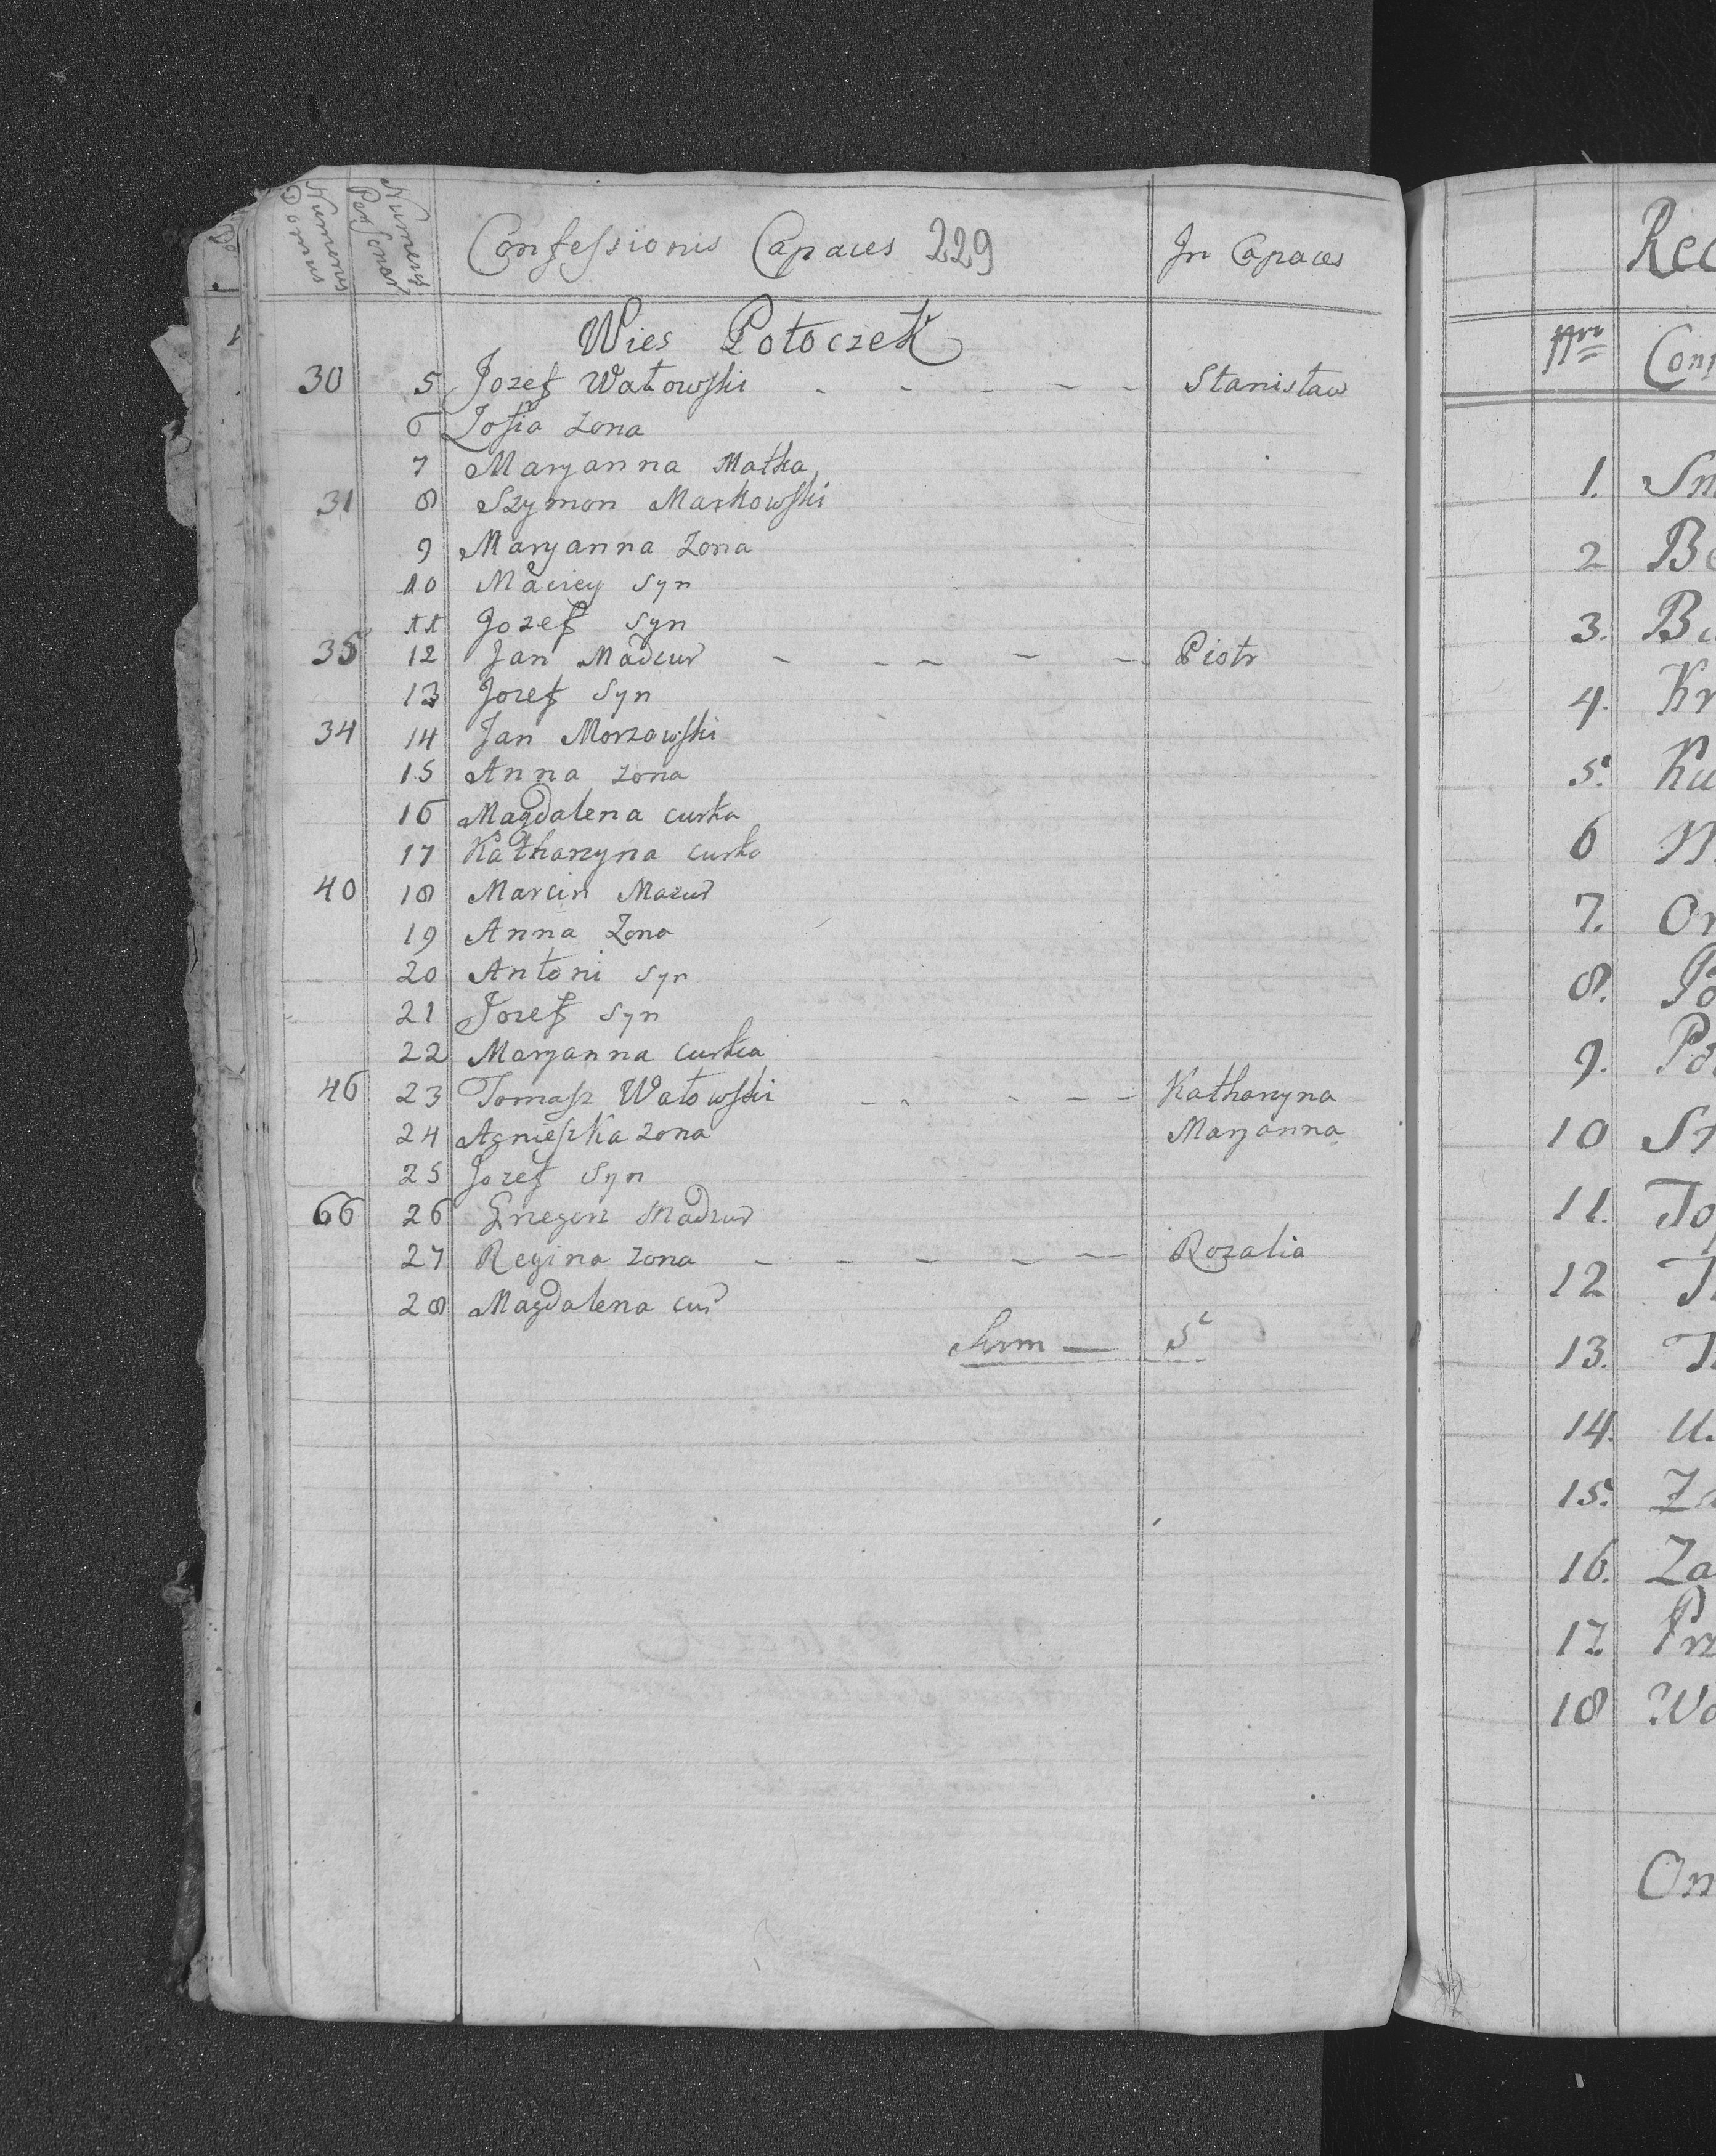 Numerus Domus
Numerus Personar
Confessionis Capaces 229 In Capaces
Wies Potoczek
30 5 Jozef Watowski - - - - - Stanisław
6 Zofia zona
7 Maryanna Matka
31 8 Szymon Markowski
9 Maryanna zona
10 Maciey Syn
11 Jozef Syn
35 12 Jan Madzur - - - - - Piotr
13 Jozef Syn
34 14 Jan Morzowski
15 Anna zona
16 Magdalena curka
17 Katharzyna curka
40 18 Marcin Mazur
19 Anna Zona
20 Antoni Syn
21 Jozef Syn
22 Maryanna curka
46 23 Tomasz Watowski - - - - - Katharzyna
24 Agnieszka zona Maryanna
25 Jozef Syn
66 26 Grzegorz Madzur
27 Regina zona - - - - - Rozalia
28 Magdalena cur
Sum — 5
Rec
Nro Con
1. Sm
2 Be
3.
4. Kr
5.
6
7. Or
8. Po
9. Po
10
11. To
12
13.
14.
15. Za
16. Za
17 Prz
18 Wo
Om